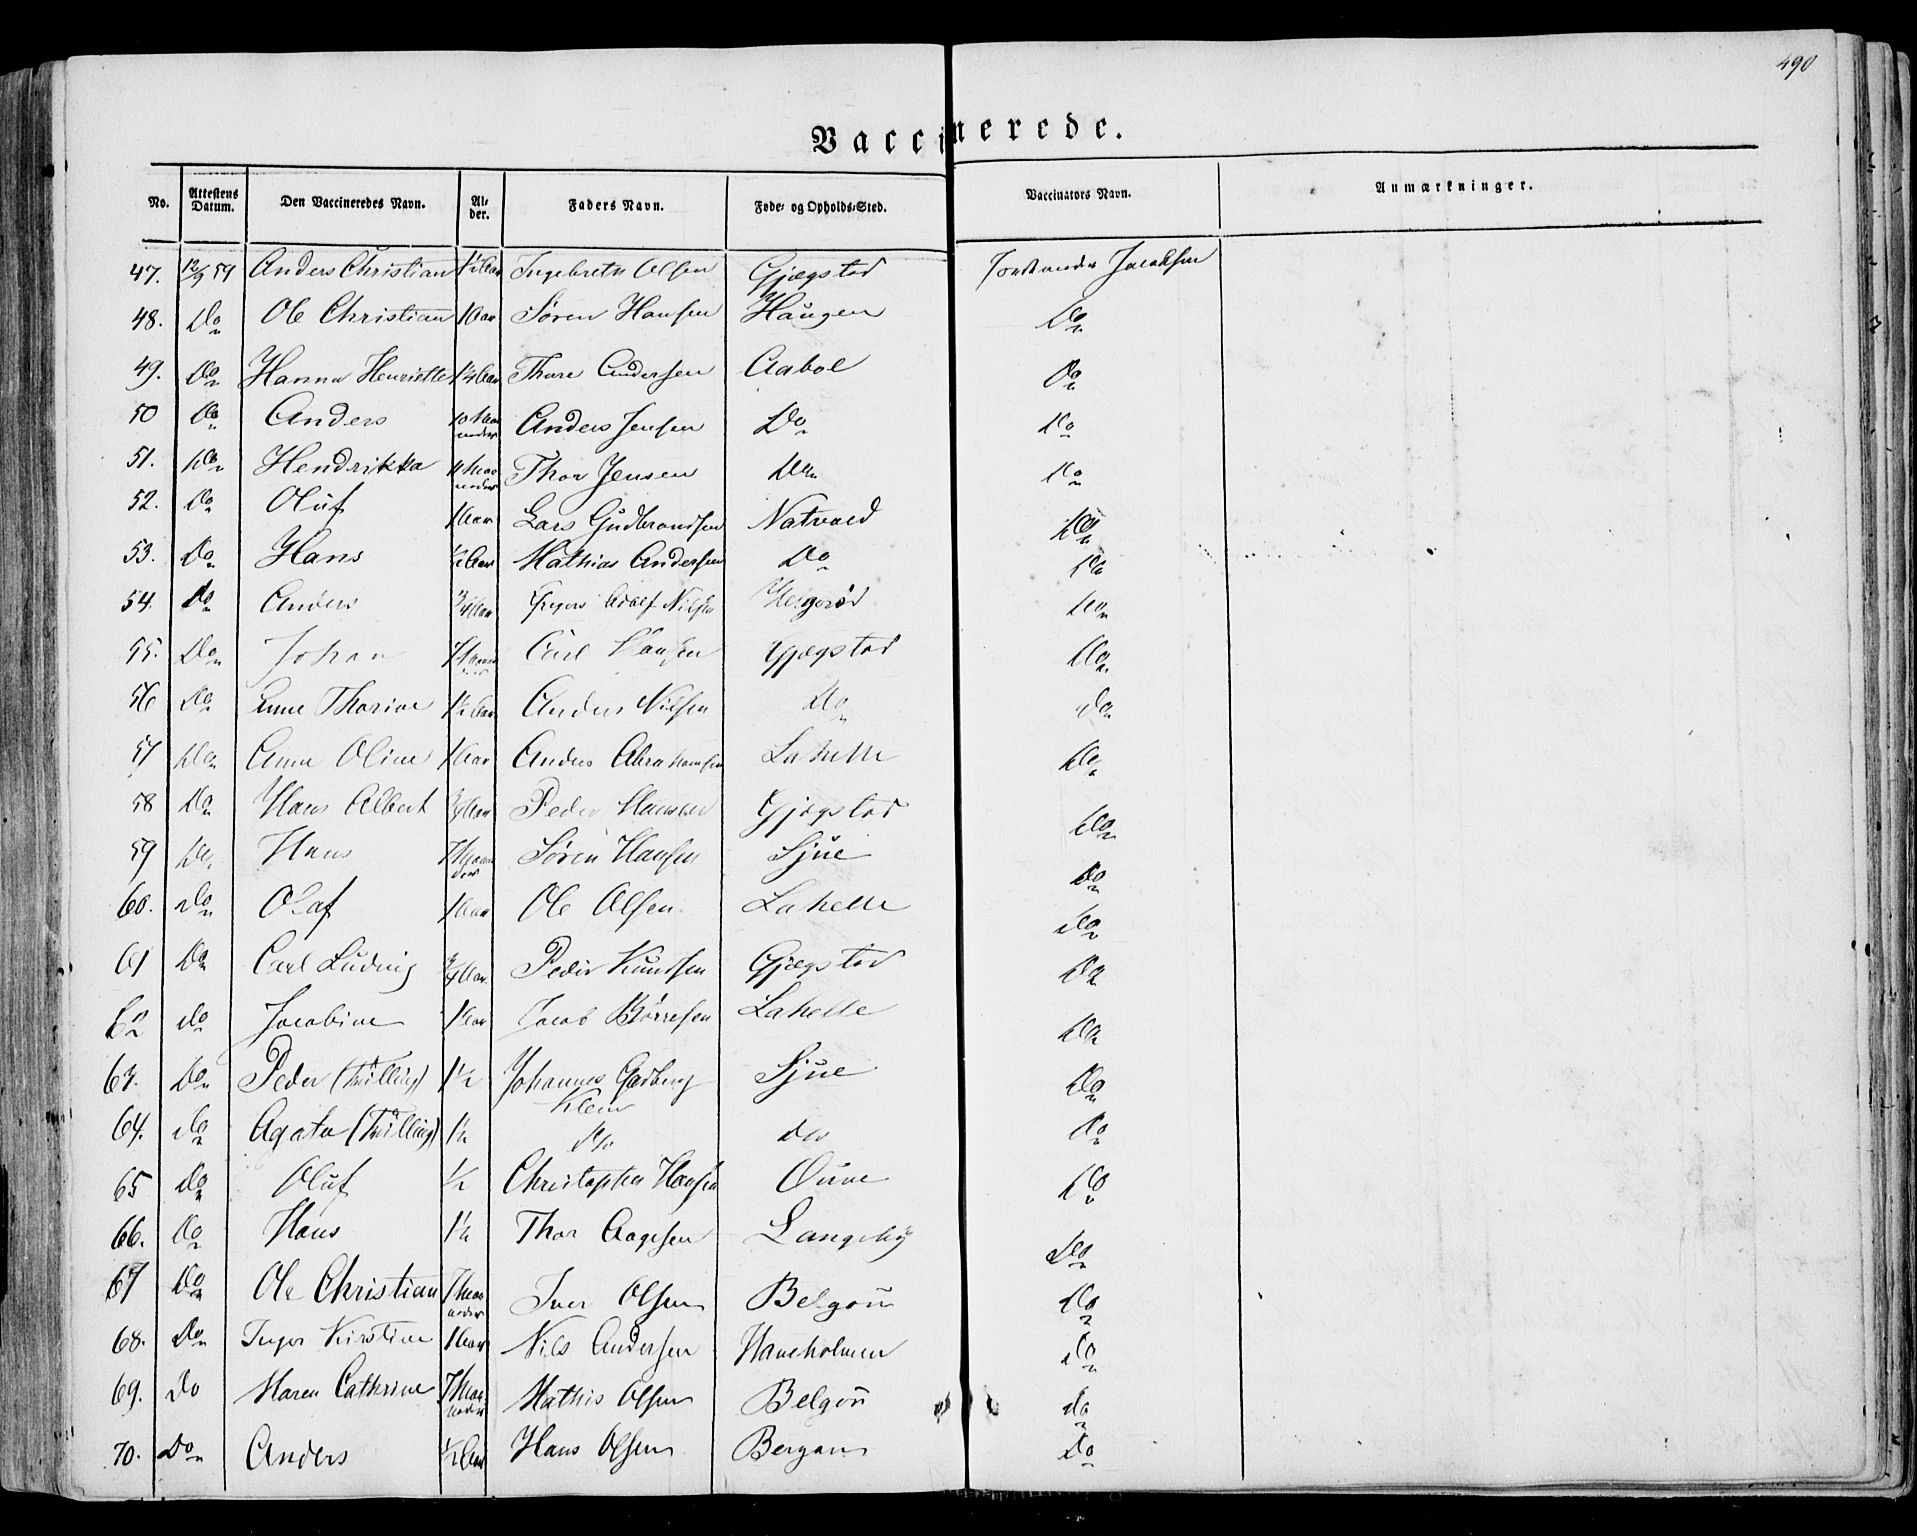 490
Vaccinerede.
No. Attestens Datum. Den Vaccineredes Navn. Al- der. Faders Navn. Føde- og Opholds-Sted. Vaccinators Navn. Anmærkninger.
47. 12/9 59 Anders Christian 1½ Aar Ingebreth Olsen Gjægstad Jacobsen
48. Do Ole Christian 1 Aar Søren Hansen Haugen Do
49. Do Hanna Henriette 1¼ Aar Thore Andersen Aabol Do
50 Do Anders 10 Maa neder Anders Jensen Do Do
51. Do Hendrikka 11 Maa neder Thor Jensen Do Do
52. Do Oluf 1 Aar Lars Gudbrandsen Natvald Do
53. Do Hans ½ Aar Mathias Andersen Do Do
54. Do Anders ¾ Aar Adolf Nilsen Helgerød Do
55. Do Johan 7 Carl Hansen Gjægstad Do
56 Do Anne Thorine 1½ Aar Anders Nilsen Do Do
57 Do Anne Oline 1 Aar Anders Abrahamsen Lahelle Do
58 Do Hans Albert ¾ Aar Peder Gjægstad Do
59 Do Hans 7 Maane der Søren Hansen Sjue Do
60. Do Olaf 1 Aar Ole Olsen Lahelle Do
61 Do Carl Ludvig ¾ Aar Peder Knudsen Gjægstad Do
62 do Jacobine 1 Aar Jacob Børresen Lahelle Do
63. Do Peder (Tvilling) 1½ Johannes Garberg Klem Sjue Do
64. Do Agata (Tvilling) 1½ Do do Do
65 Do Oluf ½ Christopher Hansen Oune Do
66. Do Hans 1½ Thor Aagesen Langeby Do
67 Do Ole Christian 7 Maa neder Iver Olsen Belgøu Do
68. Do Inger Kirstine 1 Aar Nils Andersen Haneholmen Do
69. Do Maren Cathrine 7 Maa neder Mathis Olsen Belgøu do
70. Do Anders ½ Aar Hans Olsen Bergan Do